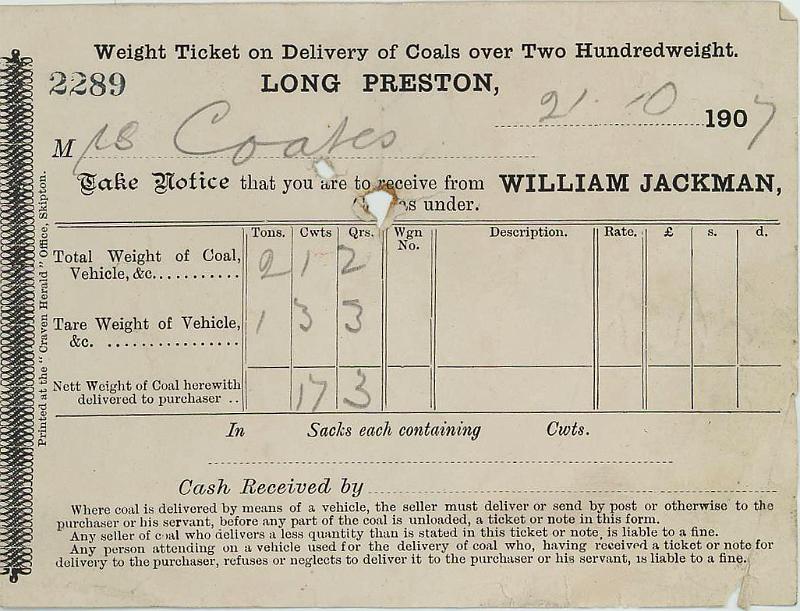 Weight Ticket on Delivery of Coals over Two Hundredweight.
2289 LONG PRESTON, 21. 10 1907
Mrs Coates
Take Notice that you are to receive from WILLIAM JACKMAN,
as under.
Tons. Cwts Qrs. Wgn No. Description. Rate. £ s. d.
Total Weight of Coal,
Vehicle, &c........... 2 1 2
Tare Weight of Vehicle, 1 3 3
&c. ................
Nett Weight of Coal herewith
delivered to purchaser .. 17 3
In Sacks each containing Cwts.
Cash Received by
Where coal is delivered by means of a vehicle, the seller must deliver or send by post or otherwise to the
purchaser or his servant, before any part of the coal is unloaded, a ticket or note in this form.
Any seller of coal who delivers a less quantity than is stated in this ticket or note, is liable to a fine.
Any person attending on a vehicle used for the delivery of coal who, having received a ticket or note for
delivery to the purchaser, refuses or neglects to deliver it to the purchaser or his servant, is liable to a fine.
Printed at the "Craven Herald" Office, Skipton.